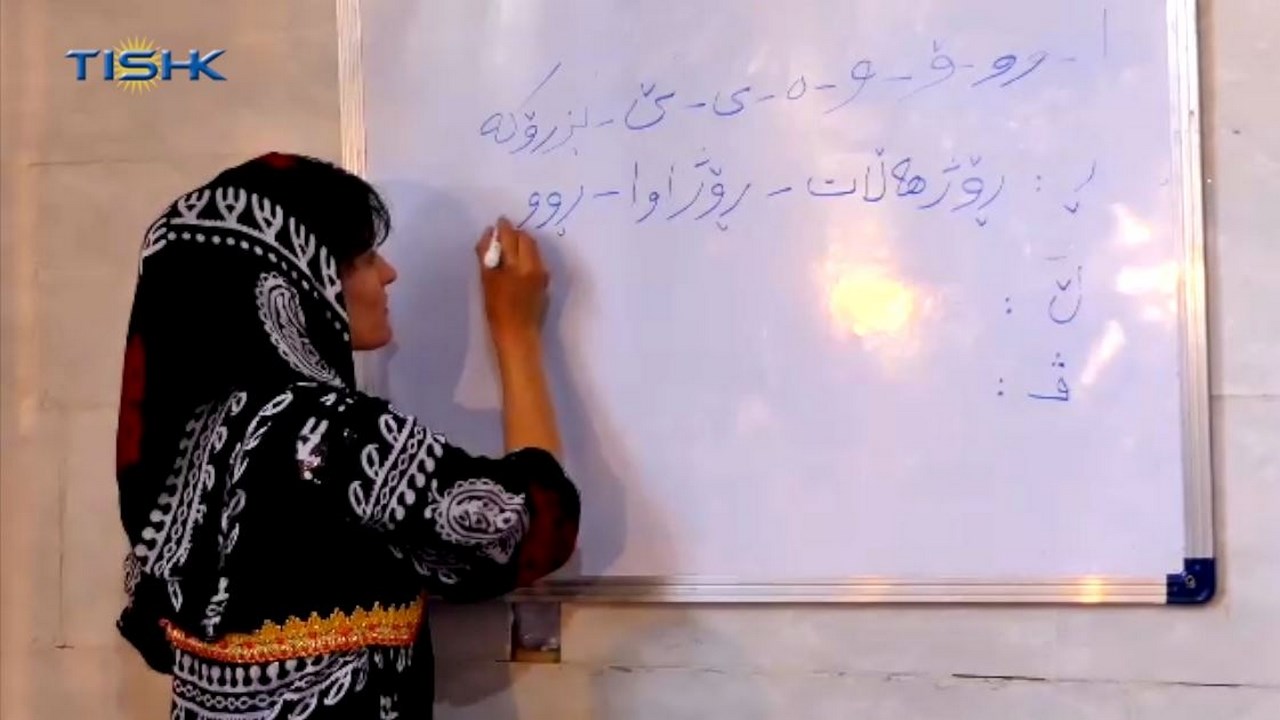 TISHK
ا - وو - ۆ - و - ە - ی - ێ - بزرۆکە
ڕ : ڕۆژهەڵات - ڕۆژاوا - ڕوو
ڵ :
ڤ :